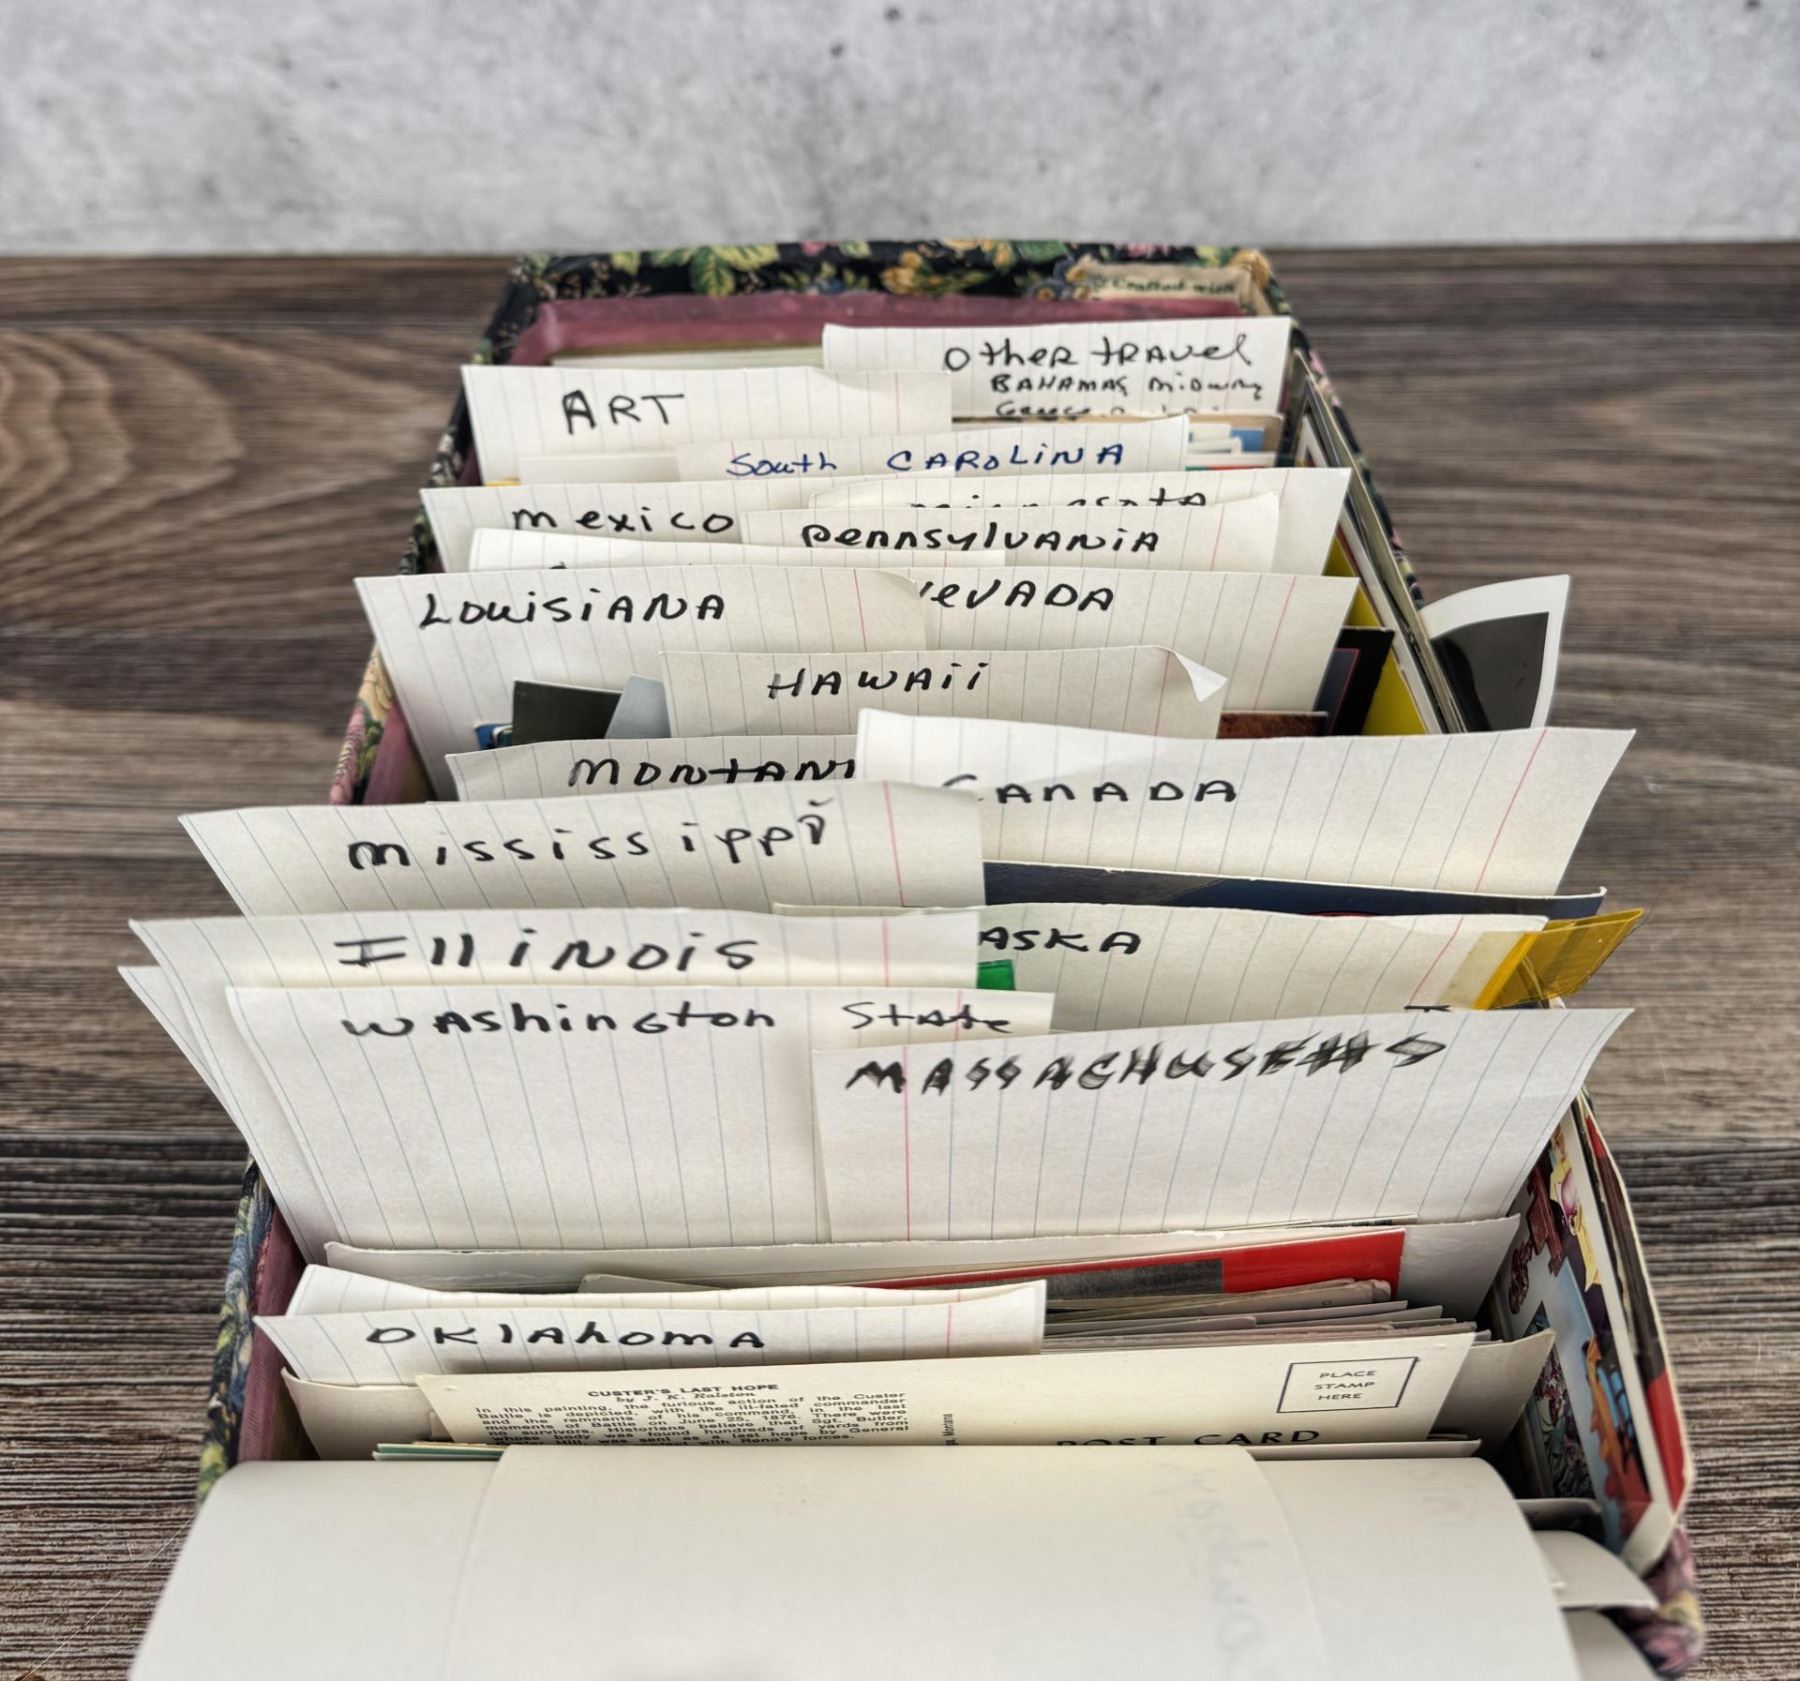 Crafted with
Other travel
BAHAMAS Midway
Greece
ART
South CAROLINA
Mexico
Pennsylvania
Louisiana
evada
HAWAii
Montan
Canada
Mississippi
Illinois
ASKA
Washington State
MASSACHUSETTS
Oklahoma
CUSTER'S LAST HOPE
by J. K. Ralston
In this painting, the furious action of the Custer
Battle is depicted, with the ill-fated commander
and the remnants of his command, in the last
moments of Battle on June 25, 1876. There were
no survivors. Historians believe that Sgt. Butler,
whose body was found hundreds of yards from
Hill, was sent as a last hope by General
with Reno's forces.
Montana
PLACE
STAMP
HERE
POST CARD